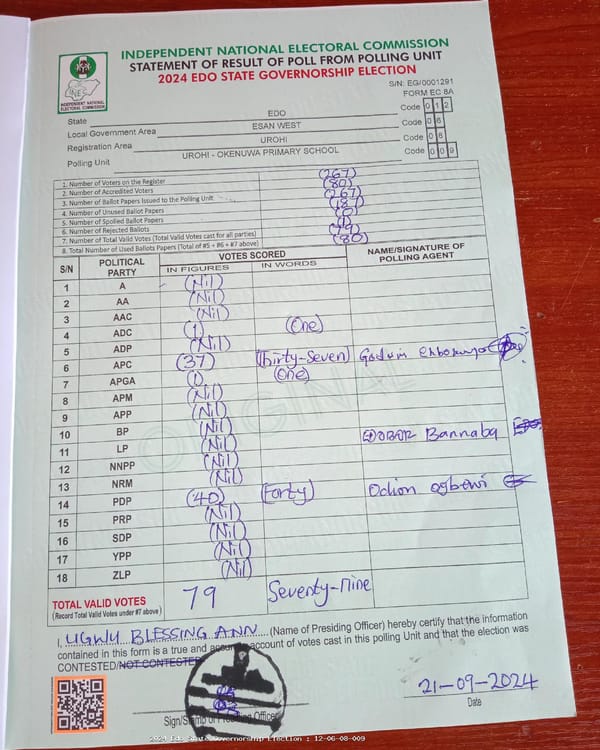 INDEPENDENT NATIONAL ELECTORAL COMMISSION
STATEMENT OF RESULT OF POLL FROM POLLING UNIT
2024 EDO STATE GOVERNORSHIP ELECTION
INEC
INDEPENDENT NATIONAL ELECTORAL COMMISSION
S/N: EG/0001291
FORM EC 8A
State EDO Code 0 1 2
Local Government Area ESAN WEST Code 0 6
Registration Area UROHI Code 0 8
Polling Unit UROHI - OKENUWA PRIMARY SCHOOL Code 0 0 9
1. Number of Voters on the Register (267)
2. Number of Accredited Voters (80)
3. Number of Ballot Papers Issued to the Polling Unit (267)
4. Number of Unused Ballot Papers (187)
5. Number of Spoiled Ballot Papers (0)
6. Number of Rejected Ballots (1)
7. Number of Total Valid Votes (Total Valid Votes cast for all parties) (79)
8. Total Number of Used Ballots Papers (Total of #5 + #6 + #7 above) (80)
S/N POLITICAL PARTY VOTES SCORED NAME/SIGNATURE OF POLLING AGENT
IN FIGURES IN WORDS
1 A (Nil)
2 AA (Nil)
3 AAC (Nil)
4 ADC (1) (One)
5 ADP (Nil)
6 APC (37) (Thirty-Seven)
7 APGA (1) (One)
8 APM (Nil)
9 APP (Nil)
10 BP (Nil)
11 LP (Nil) Bannaba
12 NNPP (Nil)
13 NRM (Nil)
14 PDP (40) (Forty) Odion
15 PRP (Nil)
16 SDP (Nil)
17 YPP (Nil)
18 ZLP (Nil)
ORIGINAL
TOTAL VALID VOTES 79 Seventy-nine
(Record Total Valid Votes under #7 above)
I, UGWU BLESSING ANN (Name of Presiding Officer) hereby certify that the information
contained in this form is a true and account of votes cast in this polling Unit and that the election was
CONTESTED/NOT CONTESTED
21-09-2024
Sign/Stamp of Presiding Officer Date
2024 Edo State Governorship Election : 12-06-08-009